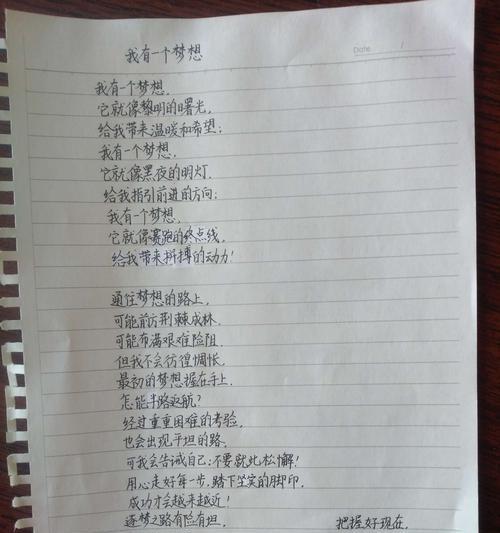 我有一个梦想
Date /
我有一个梦想,
它就像黎明的曙光,
给我带来温暖和希望;
我有一个梦想,
它就像黑夜的明灯,
给我指引前进的方向;
我有一个梦想,
它就像赛跑的终点线,
给我带来拼搏的动力!
通往梦想的路上,
可能前方荆棘成林,
可能布满艰难险阻,
但我不会彷徨惆怅,
最初的梦想握在手上,
怎能半路返航?
经过重重困难的考验,
也会出现平坦的路、
可我会告诫自己:不要就此松懈!
用心走好每一步,踏下坚实的脚印,
成功才会越来越近!
逐梦之路有险有坦, 把握好现在,